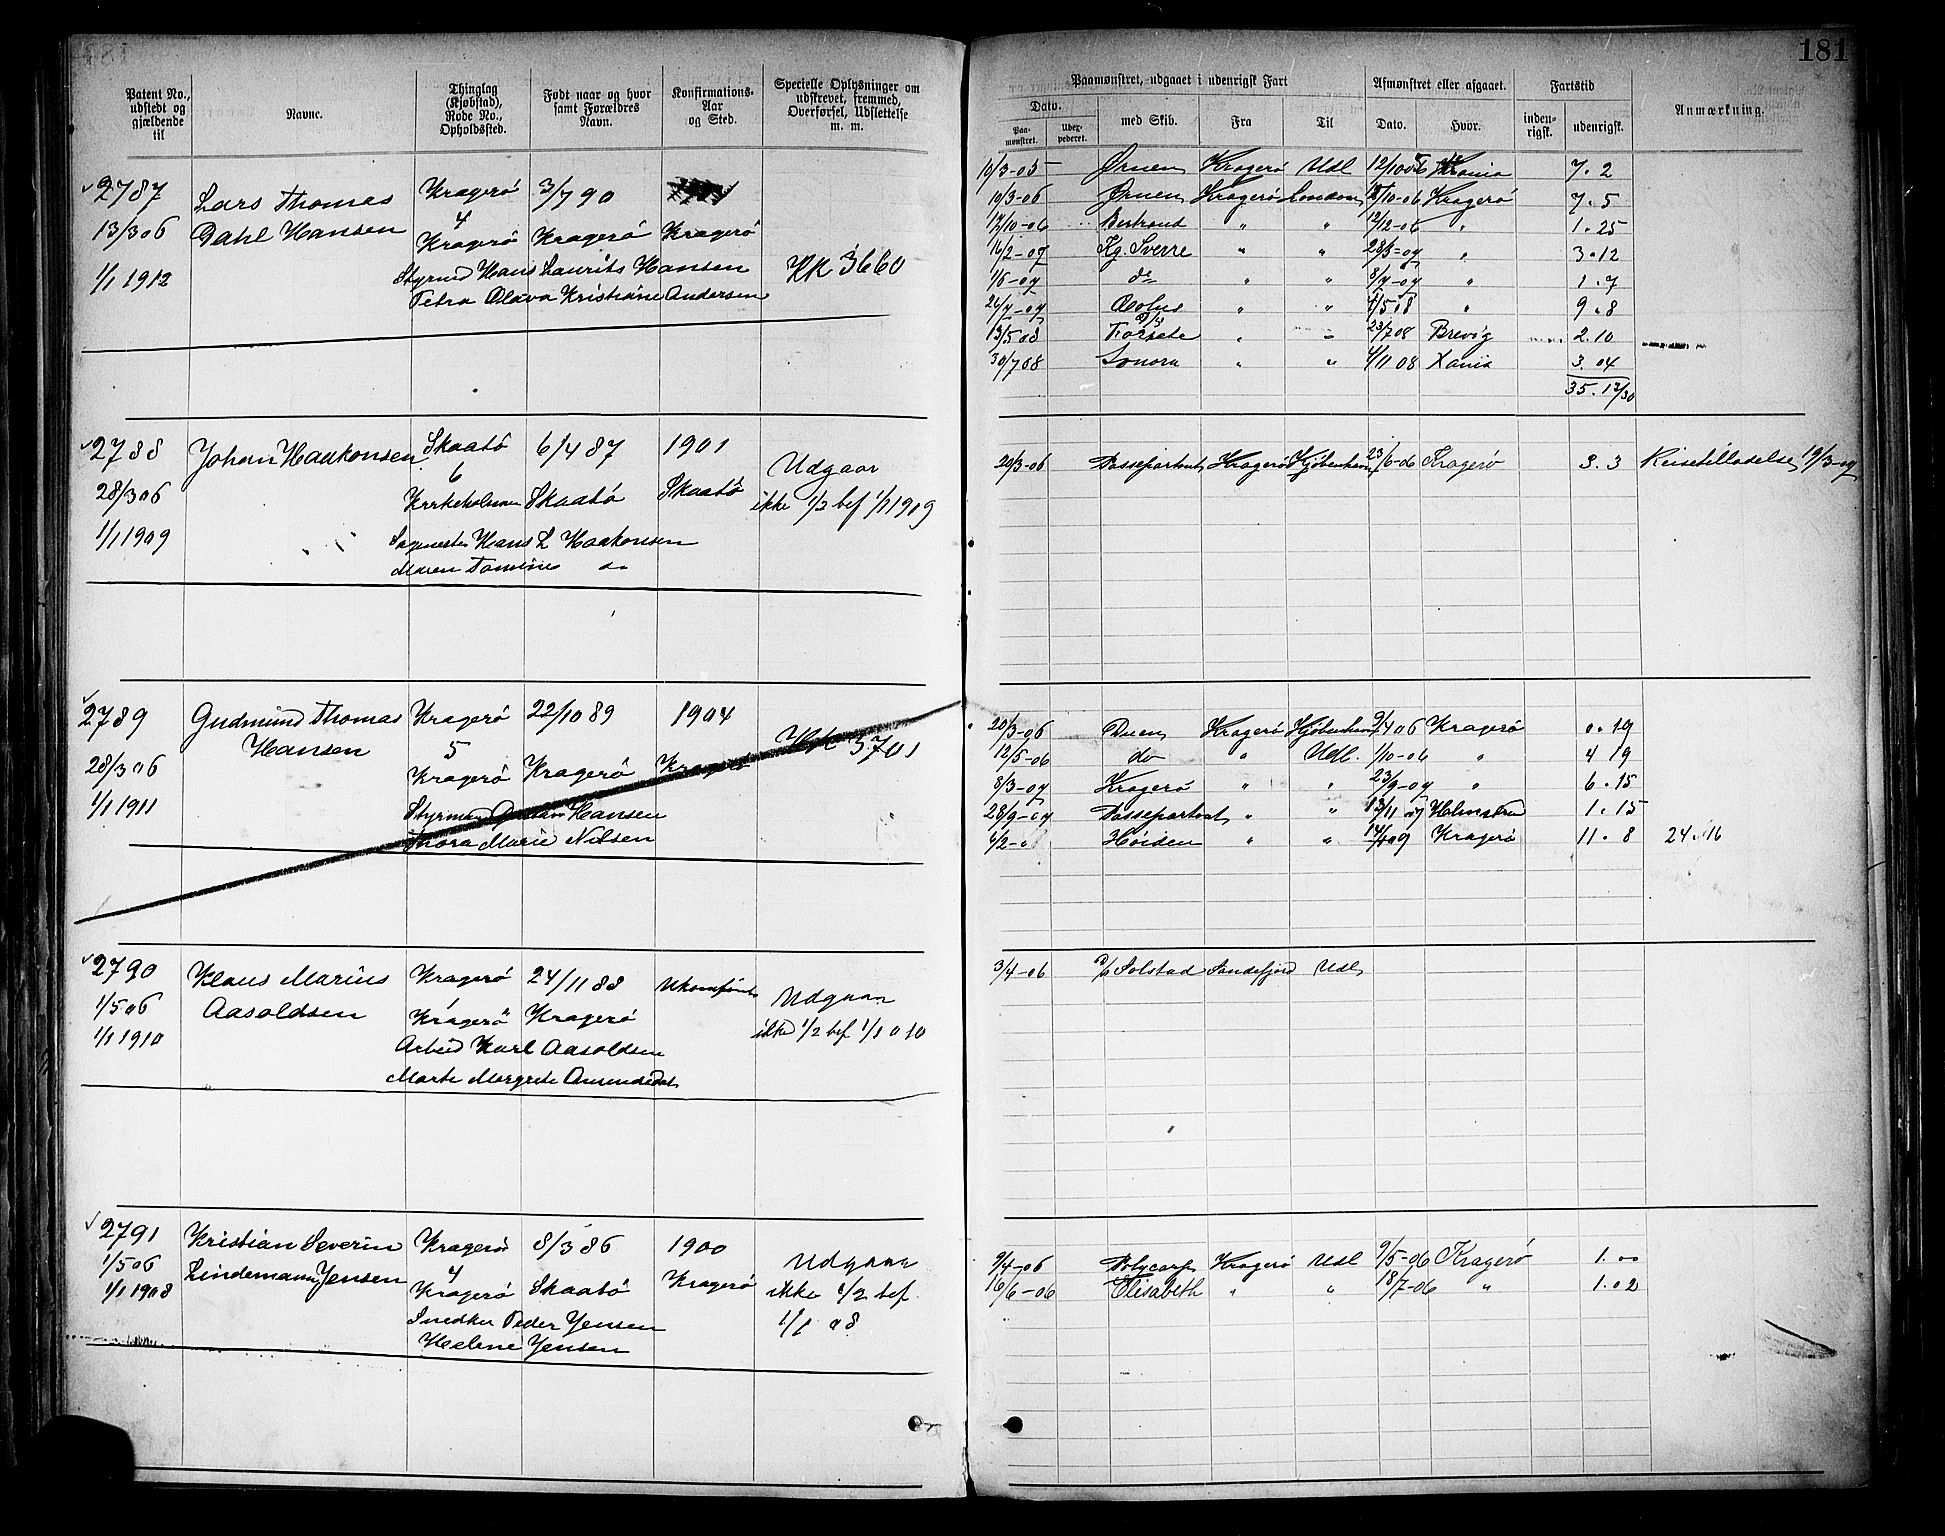 181
Patent No., udstedt og gjældende til
Navne.
Thinglag (Kjøbstad), Rode No., Opholdssted.
Født naar og hvor samt Forældres Navn.
Konfirmations-Aar og Sted.
Specielle Oplysninger om udskrevet, fremmed, Overførsel, Udslettelse m. m.
Paamønstret, udgaaet i udenrigsk Fart
Dato.
Paamønstret.
Uderpederet.
med Skib.
Fra
Til
Afmønstret eller afgaaet.
Dato.
Hvor.
Fartstid
indenrigsk.
udenrigsk.
Anmærkning.
2787 Lars Thomas Kragerö 3/7 90
4
13/3 06 Dahl Hansen Kragerö Kragerö Kragerö
1/1 1912 Styrmd Hans Laurits Hansen KK 3660
Petra Olava Kristiane Andersen
10/3-05 Ørnen Kragerö Udl 12/10 05 Xania 7. 2
10/3-06 Ørnen Kragerö London 12/10-06 Kragerö 7. 5
17/10-06 Bertrand " " 12/12-06 " 1. 25
16/2-07 Kg. Sverre " " 28/5-07 " 3. 12
1/6-07 do " " 8/7-07 " 1. 7
26/7-07 " " 4/5 08 " 9. 8
13/5 08 " " 23/7 08 Brevig 2. 10
30/7 08 Sonora " " 4/11 08 Xania 3. 04
35. 12/30
2788 Johan Haakonsen Skaatö 6/4 87 1901 Udgaar
6
28/3 06 Kirkeholmen Skaatö Skaatö ikke 1/2 bef 1/1 1909
1/1 1909 Hans L Haakonsen
Maren Tomine do
20/3-06 Passepartout Kragerö Kjöbenhavn 23/6-06 Kragerö 3. 3 Reisetilladelse 19/3-07
2789 Gudmund Thomas Kragerö 22/10 89 1904 KK 3701
Hansen 5
28/3 06 Kragerö Kragerö Kragerö
1/1 1911 Styrmand Hansen
Thora Marie Nilsen
20/3-06 Duen Kragerö Kjöbenhavn 9/4 06 Kragerö 0. 19
12/5-06 do " Udl. 1/10-06 " 4 19
8/3-07 Kragerö " " 23/9-07 " 6. 15
28/9-07 Passepartout " " 13/11 07 1. 15
6/2- Höiden " " 14/1 09 Kragerö 11. 8 24. 16
2790 Klaus Marius Kragerö 24/11 88 Ukonfirmt Udgaar
1/5 06 Aasoldsen Kragerö Kragerö ikke 1/2 bef 1/1 010
1/1 1910 Arbeid Karl Aasoldsen
Marte Margrete Amundsdat
3/4-06 Solstad Sandefjord Udl
2791 Kristian Severin Kragerö 8/3 86 1900 Udgaar
1/5 06 Lindemann Jensen 4
1/1 1908 Kragerö Skaatö Kragerö ikke 1/2 bef
Snedker Peder Jensen 1/1 08
Helene Jensen
9/4-06 Polycarp Kragerö Udl 9/5-06 Kragerö 1. 00
16/6-06 Elisabeth " " 18/7-06 " 1. 02